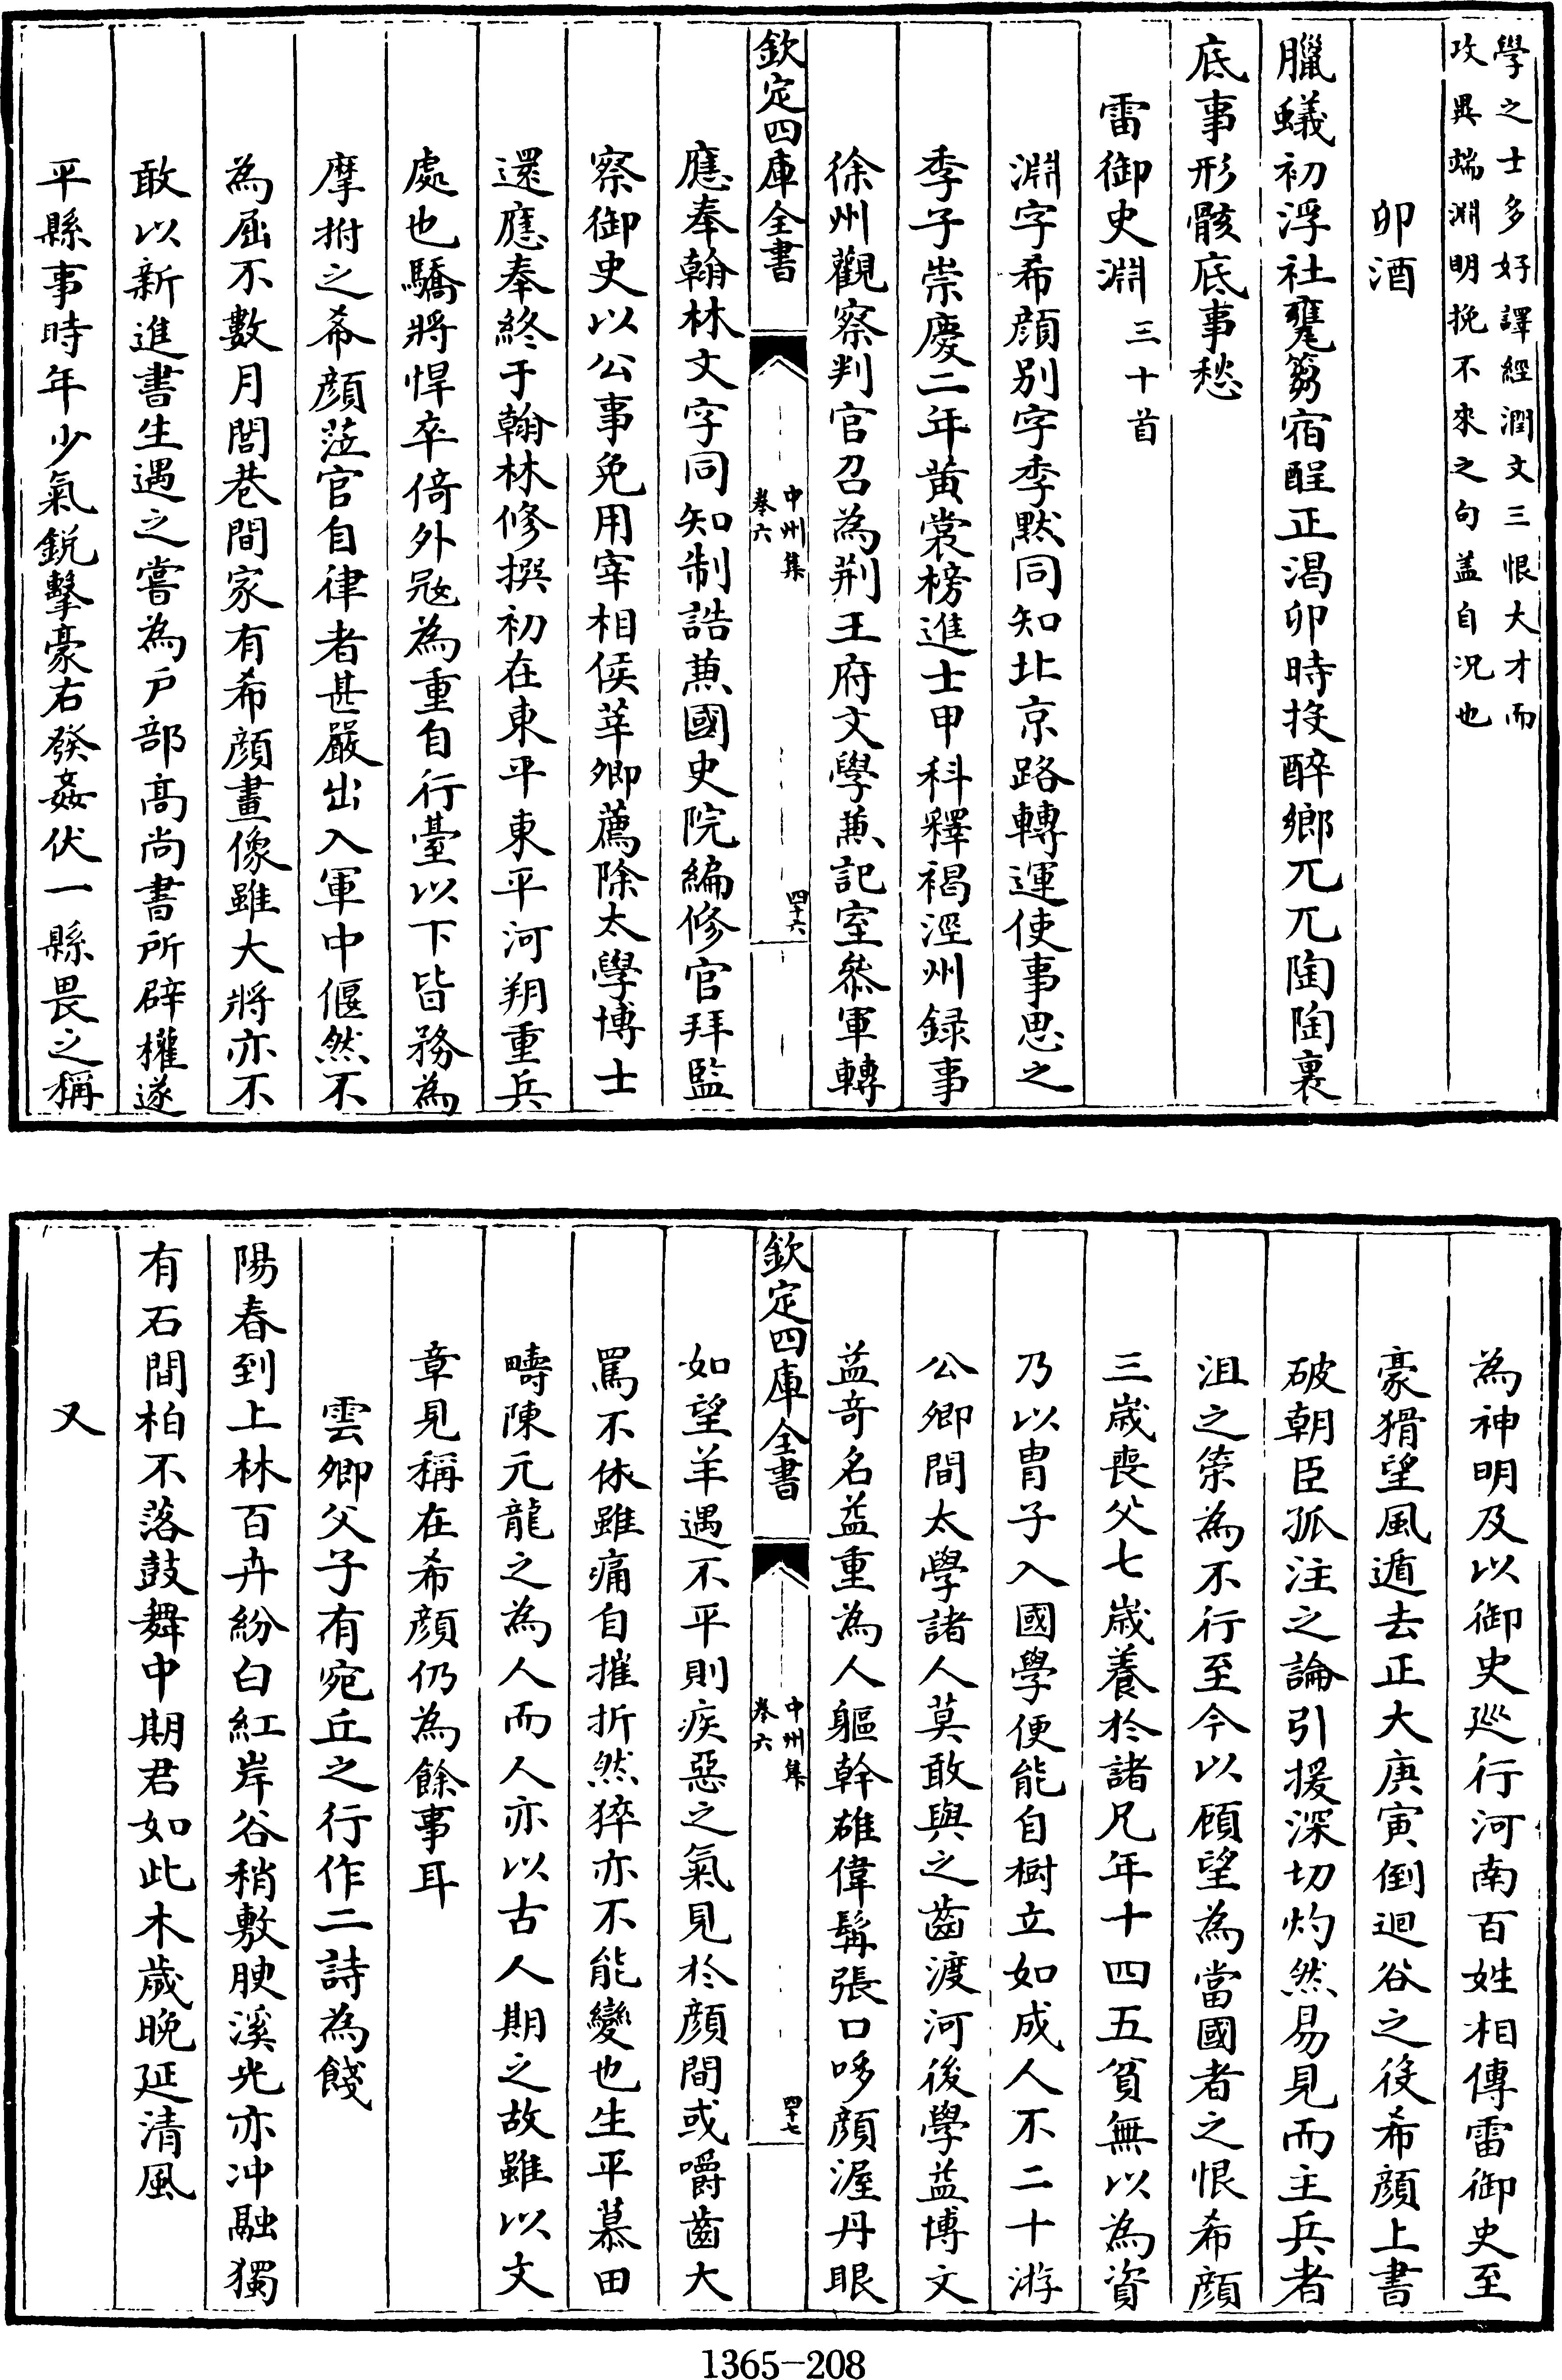 學之士多好譯經潤文三恨大才而
攻異端淵明挽不來之句盖自況也
卯酒
臘蟻初浮社甕篘宿酲正渴卯時投醉鄉兀兀陶陶裏
底事形骸底事愁
雷御史淵三十首
淵字希顔别字季黙同知北京路轉運使事思之
季子崇慶二年黄裳榜進士甲科釋褐涇州録事
徐州觀察判官召為荆王府文學兼記室叅軍轉
欽定四庫全書
中州集
卷六
四十六
應奉翰林文字同知制誥兼國史院編修官拜監
察御史以公事免用宰相侯莘卿薦除太學博士
還應奉終于翰林修撰初在東平東平河朔重兵
處也驕將悍卒倚外冦為重自行臺以下皆務為
摩拊之希顔蒞官自律者甚嚴出入軍中偃然不
為屈不數月閭巷間家有希顔畫像雖大將亦不
敢以新進書生遇之嘗為户部髙尚書所辟權遂
平縣事時年少氣鋭擊豪右發姦伏一縣畏之稱
為神明及以御史廵行河南百姓相傳雷御史至
豪猾望風遁去正大庚寅倒迴谷之役希顔上書
破朝臣孤注之論引援深切灼然易見而主兵者
沮之策為不行至今以顧望為當國者之恨希顔
三歳喪父七歳養於諸兄年十四五貧無以為資
乃以胄子入國學便能自樹立如成人不二十游
公卿間太學諸人莫敢與之齒渡河後學益博文
益竒名益重為人軀幹雄偉髯張口哆顔渥丹眼
欽定四庫全書
中州集
卷六
四十七
如望羊遇不平則疾惡之氣見於顔間或嚼齒大
罵不休雖痛自摧折然猝亦不能變也生平慕田
疇陳元龍之為人而人亦以古人期之故雖以文
章見稱在希顔仍為餘事耳
雲卿父子有宛丘之行作二詩為餞
陽春到上林百卉紛白紅岸谷稍敷腴溪光亦冲融獨
有石間柏不落鼓舞中期君如此木歳晚延清風
又
1365-208